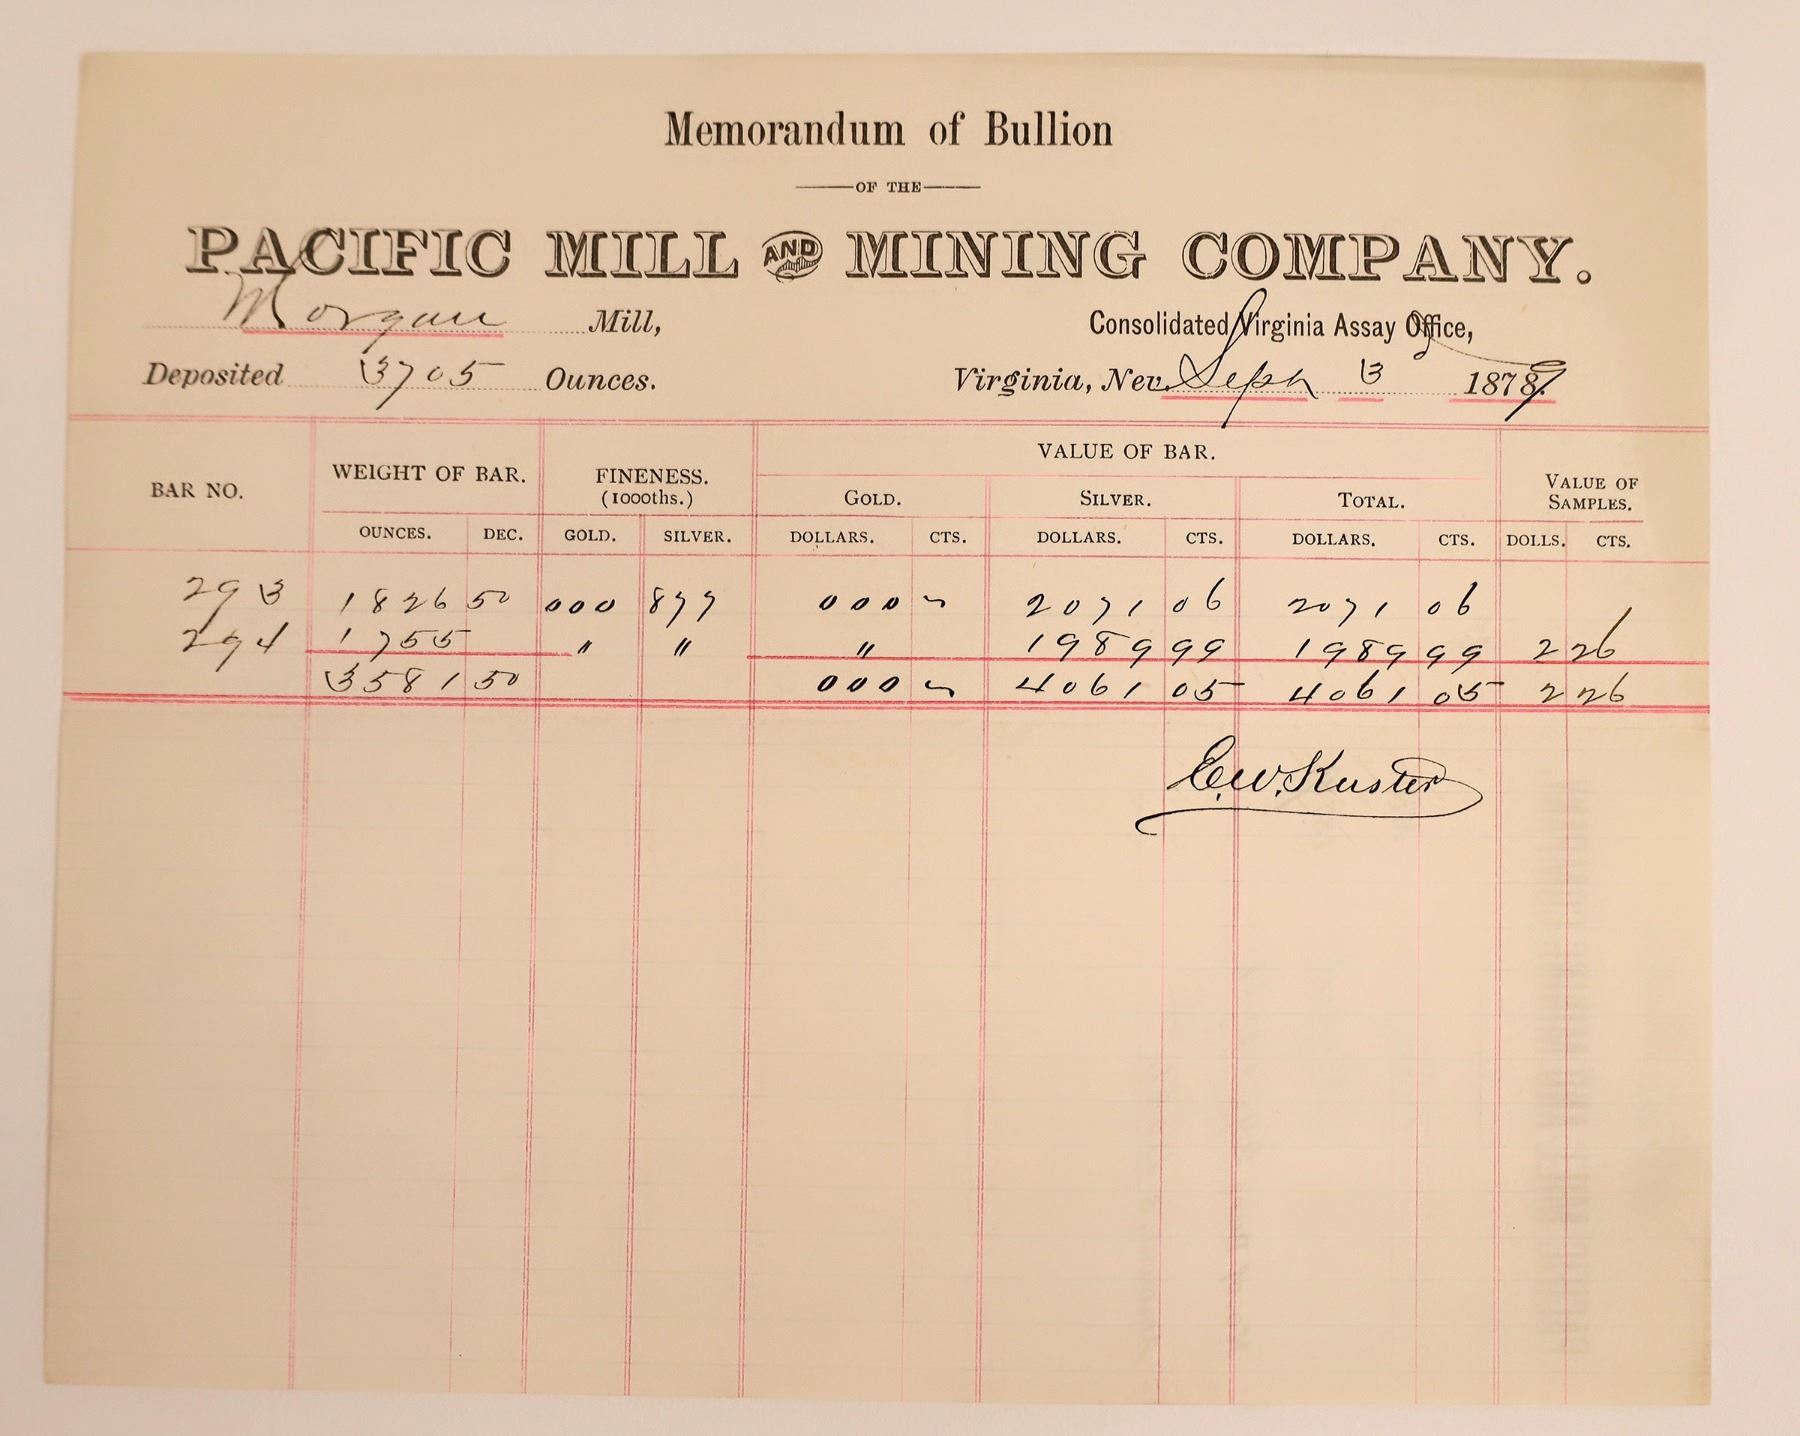 Memorandum of Bullion
OF THE
PACIFIC MILL AND MINING COMPANY.
Morgan Mill,
Consolidated Virginia Assay Office,
Deposited 3705 Ounces.
Virginia, Nev. Sept 3 1879
BAR NO. WEIGHT OF BAR. FINENESS. (1000ths.) VALUE OF BAR. VALUE OF SAMPLES.
GOLD. SILVER. TOTAL.
OUNCES. DEC. GOLD. SILVER. DOLLARS. CTS. DOLLARS. CTS. DOLLARS. CTS. DOLLS. CTS.
293 1826 50 000 877 000 ~ 2071 06 2071 06
294 1755 " " " 1989 99 1989 99 2 26
3581 50 000 ~ 4061 05 4061 05 2 26
C.W. Kuster